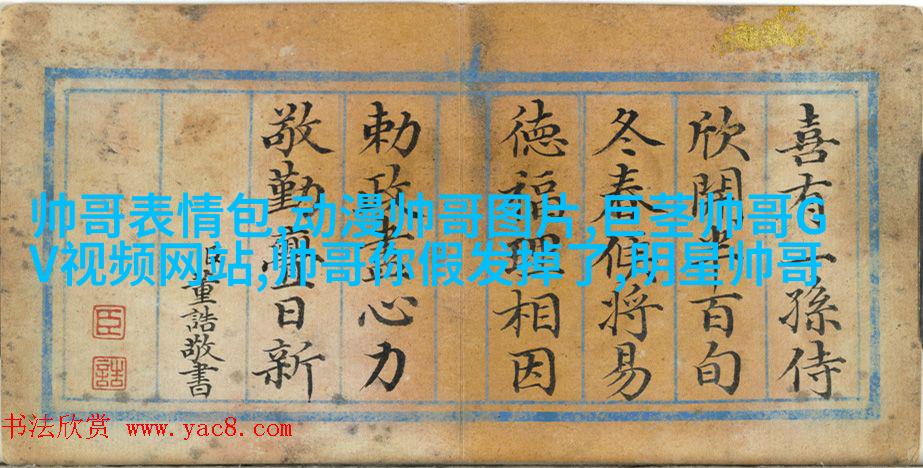 喜有一孫侍
欣開半百旬
冬春候將易
徳福理相因
勅政盡心力
敬勤日新
臣董誥敬書
臣
誥
帅哥表情包,动漫帅哥图片,巨茎帅哥G
V视频网站,帅哥你假发掉了,明星帅哥
书法欣赏 www.yac8.com